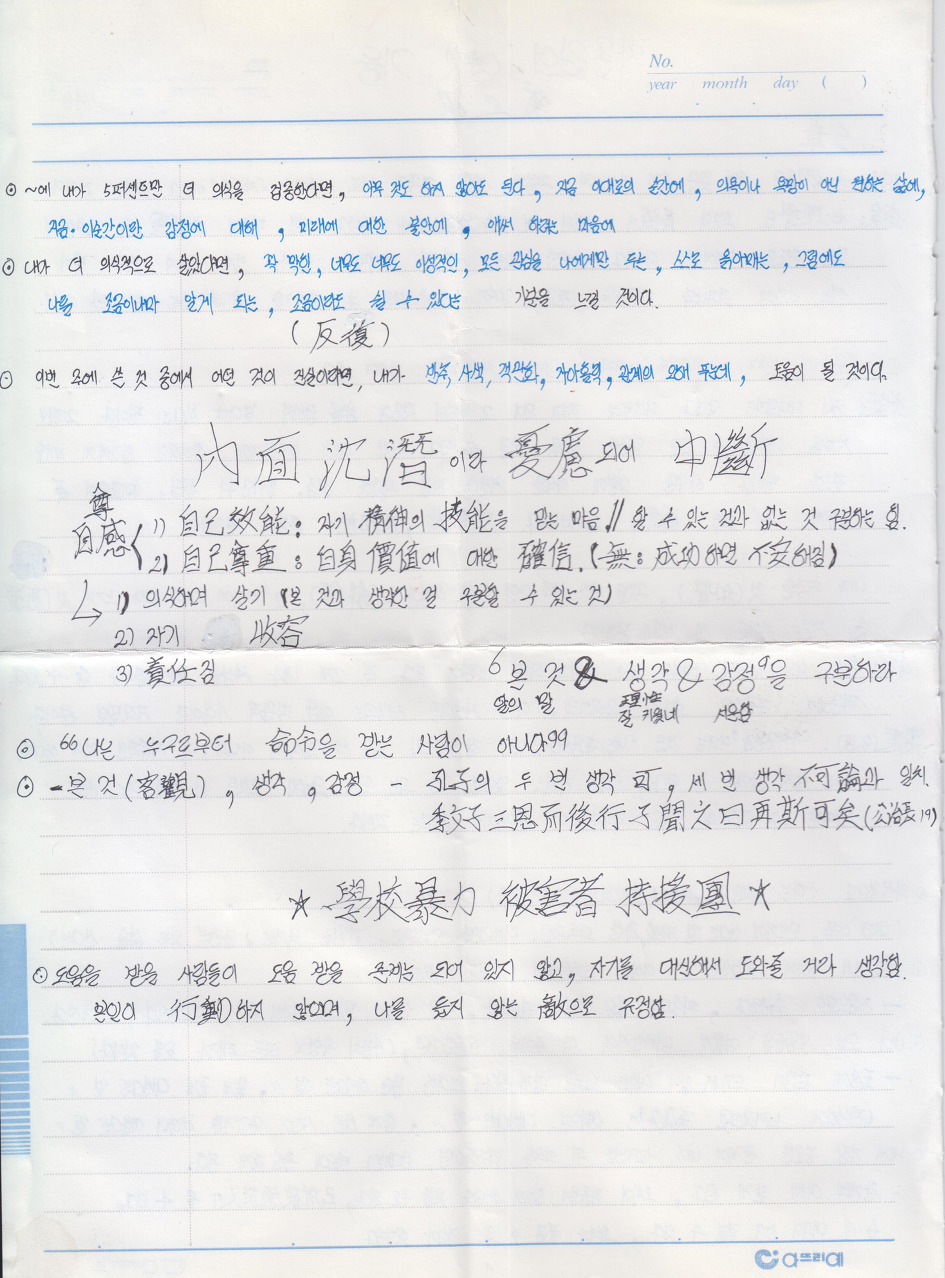 No.
year month day ( )
⊙ ~에 내가 5퍼센트만 더 의식을 집중한다면, 아무 것도 하지 않아도 된다, 지금 이대로의 순간에, 의욕이나 욕망이 아닌 원하는 삶에,
지금·이순간이란 감정에 대해, 미래에 대한 불안에, 애써 하려는 마음에
⊙ 내가 더 의식적으로 살았다면, 꽉 막힌, 너무도 너무도 이성적인, 모든 관심을 나에게만 두는, 스스로 옭아매는, 그럼에도
나를 조금이나마 알게 되는, 조금이라도 쉴 수 있다는 기분을 느낄 것이다.
(反復)
⊙ 이번 주에 쓴 것 중에서 어떤 것이 진실이라면, 내가 반복, 사색, 객관화, 자아출력, 관계의 오해 푸는데, 도움이 될 것이다.
內面沈潛이라 憂慮되어 中斷
自尊感 < 1) 自己效能: 자기 精神의 技能을 믿는 마음 // 할 수 있는 것과 없는 것 구분하는 힘.
2) 自己尊重: 自身 價値에 대한 確信. (無: 成功하면 不安해짐)
↳ 1) 의식하며 살기 (본 것과 생각한 걸 구분할 수 있는 것)
2) 자기 收容
3) 責任짐
6본 것 & 생각 & 감정9을 구분하라
말의 말 잘 키웠네 서운함
⊙ 66나는 누구로부터 命令을 받는 사람이 아니다99
⊙ -본 것(客觀), 생각, 감정 - 孔子의 두 번 생각 可, 세 번 생각 不可論과 일치.
季文子三思而後行子聞之曰再斯可矣(公冶長19)
☆ 學校暴力 被害者 持援團 ☆
⊙ 도움을 받을 사람들이 도움 받을 준비는 되어 있지 않고, 자기를 대신해서 도와줄 거라 생각함.
본인이 行動하지 않으면, 나를 돕지 않는 敵으로 규정함.
아프리에